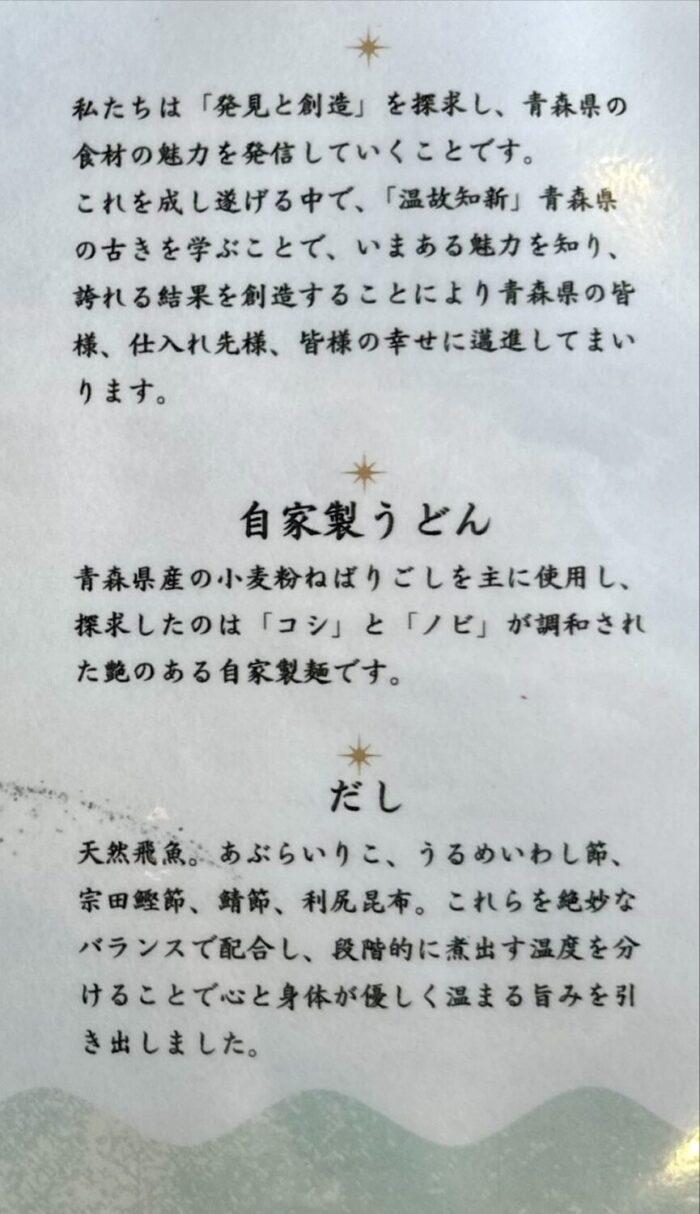 私たちは「発見と創造」を探求し、青森県の
食材の魅力を発信していくことです。
これを成し遂げる中で、「温故知新」青森県
の古きを学ぶことで、いまある魅力を知り、
誇れる結果を創造することにより青森県の皆
様、仕入れ先様、皆様の幸せに邁進してまい
ります。
自家製うどん
青森県産の小麦粉ねばりごしを主に使用し、
探求したのは「コシ」と「ノビ」が調和され
た艶のある自家製麺です。
だし
天然飛魚。あぶらいりこ、うるめいわし節、
宗田鰹節、鯖節、利尻昆布。これらを絶妙な
バランスで配合し、段階的に煮出す温度を分
けることで心と身体が優しく温まる旨みを引
き出しました。